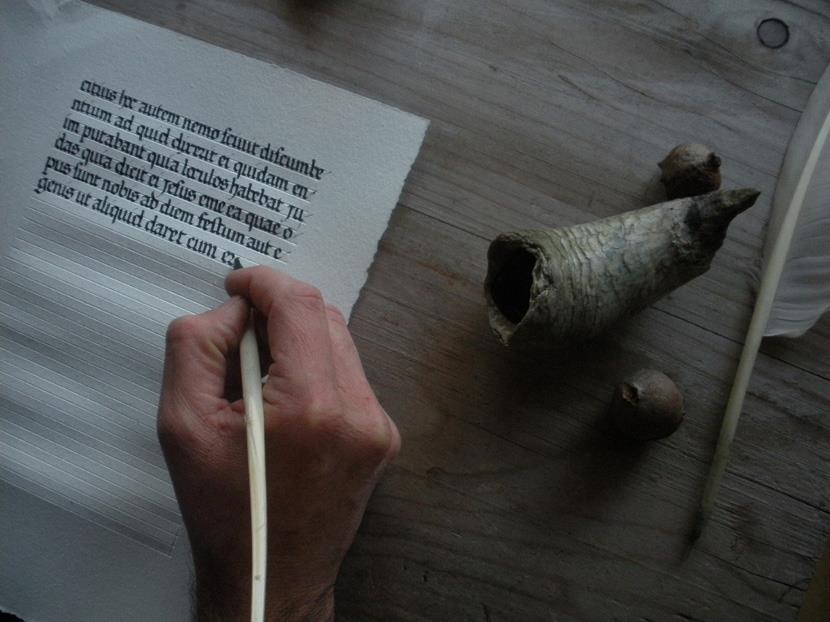 citius hoc autem nemo scivit discumbe
ntium ad quid dixerit ei quidam en
im putabant quia loculos habebat ju
das quia dicit ei jesus eme ea quae o
pus sunt nobis ad diem festum aut e
genis ut aliquid daret cum er